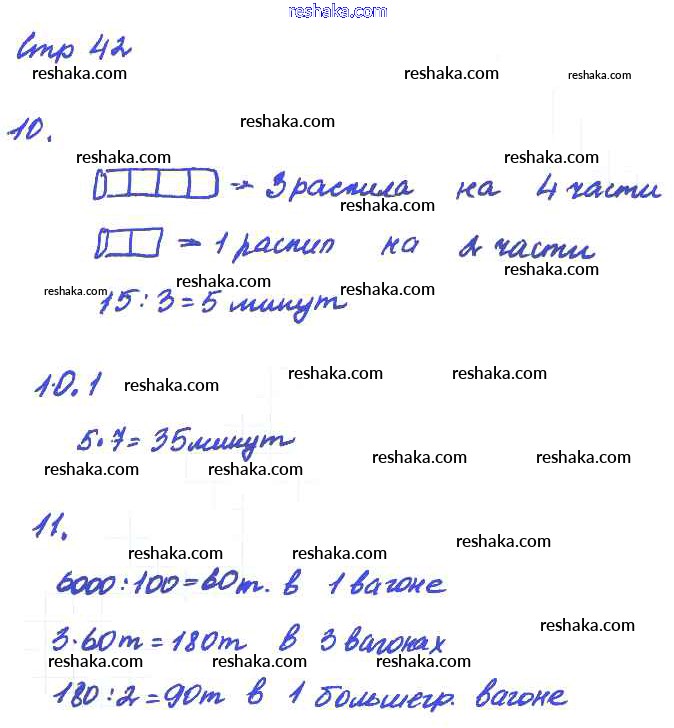 reshaka.com
Стр 42
reshaka.com reshaka.com reshaka.com
reshaka.com
10.
reshaka.com reshaka.com
→ 3 распила на 4 части
reshaka.com
→ 1 распил на 2 части
reshaka.com
reshaka.com reshaka.com reshaka.com
15 : 3 = 5 минут
reshaka.com reshaka.com
10.1 reshaka.com
5 · 7 = 35 минут
reshaka.com reshaka.com
reshaka.com reshaka.com
11.
reshaka.com
reshaka.com reshaka.com
6000 : 100 = 60т. в 1 вагоне
reshaka.com
3 · 60т = 180т в 3 вагонах
reshaka.com reshaka.com reshaka.com
180 : 2 = 90т в 1 большегр. вагоне